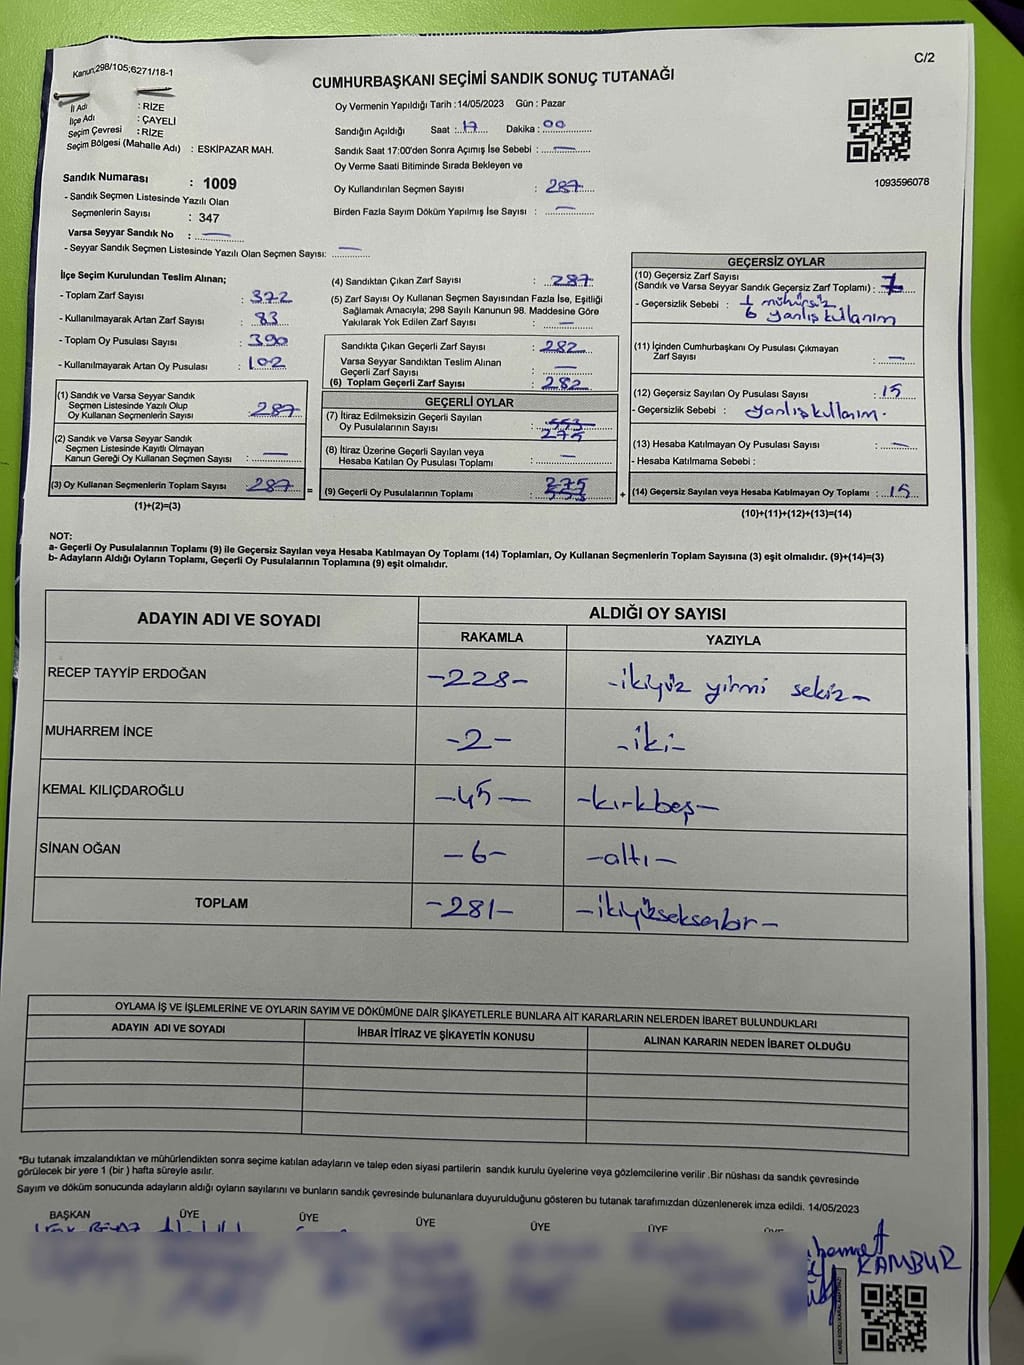 C/2
Kanun;298/105;6271/18-1
CUMHURBAŞKANI SEÇİMİ SANDIK SONUÇ TUTANAĞI
İl Adı : RİZE
İlçe Adı : ÇAYELİ
Seçim Çevresi : RİZE
Seçim Bölgesi (Mahalle Adı) : ESKİPAZAR MAH.
Sandık Numarası : 1009
- Sandık Seçmen Listesinde Yazılı Olan
Seçmenlerin Sayısı : 347
Varsa Seyyar Sandık No : —
- Seyyar Sandık Seçmen Listesinde Yazılı Olan Seçmen Sayısı: —
Oy Vermenin Yapıldığı Tarih :14/05/2023 Gün : Pazar
Sandığın Açıldığı Saat : 17 Dakika : 00
Sandık Saat 17:00'den Sonra Açımış İse Sebebi : —
Oy Verme Saati Bitiminde Sırada Bekleyen ve
Oy Kullandırılan Seçmen Sayısı : 287
Birden Fazla Sayım Döküm Yapılmış İse Sayısı : —
1093596078
İlçe Seçim Kurulundan Teslim Alınan;
- Toplam Zarf Sayısı : 372
- Kullanılmayarak Artan Zarf Sayısı : 83
- Toplam Oy Pusulası Sayısı : 390
- Kullanılmayarak Artan Oy Pusulası : 102
(1) Sandık ve Varsa Seyyar Sandık
Seçmen Listesinde Yazılı Olup
Oy Kullanan Seçmenlerin Sayısı : 287
(2) Sandık ve Varsa Seyyar Sandık
Seçmen Listesinde Kayıtlı Olmayan
Kanun Gereği Oy Kullanan Seçmen Sayısı : —
(3) Oy Kullanan Seçmenlerin Toplam Sayısı : 287
(1)+(2)=(3)
(4) Sandıktan Çıkan Zarf Sayısı : 287
(5) Zarf Sayısı Oy Kullanan Seçmen Sayısından Fazla İse, Eşitliği
Sağlamak Amacıyla; 298 Sayılı Kanunun 98. Maddesine Göre
Yakılarak Yok Edilen Zarf Sayısı : —
Sandıkta Çıkan Geçerli Zarf Sayısı : 282
Varsa Seyyar Sandıktan Teslim Alınan
Geçerli Zarf Sayısı : —
(6) Toplam Geçerli Zarf Sayısı : 282
GEÇERLİ OYLAR
(7) İtiraz Edilmeksizin Geçerli Sayılan
Oy Pusulalarının Sayısı : 553
275
(8) İtiraz Üzerine Geçerli Sayılan veya
Hesaba Katılan Oy Pusulası Toplamı : —
(9) Geçerli Oy Pusulalarının Toplamı : 275
553
=
+
GEÇERSİZ OYLAR
(10) Geçersiz Zarf Sayısı
(Sandık ve Varsa Seyyar Sandık Geçersiz Zarf Toplamı) : 7
- Geçersizlik Sebebi : 1 mühürsüz
6 yanlış kullanım
(11) İçinden Cumhurbaşkanı Oy Pusulası Çıkmayan
Zarf Sayısı : —
(12) Geçersiz Sayılan Oy Pusulası Sayısı : 15
- Geçersizlik Sebebi : yanlış kullanım.
(13) Hesaba Katılmayan Oy Pusulası Sayısı : —
- Hesaba Katılmama Sebebi :
(14) Geçersiz Sayılan veya Hesaba Katılmayan Oy Toplamı : 15
(10)+(11)+(12)+(13)=(14)
NOT:
a- Geçerli Oy Pusulalarının Toplamı (9) ile Geçersiz Sayılan veya Hesaba Katılmayan Oy Toplamı (14) Toplamları, Oy Kullanan Seçmenlerin Toplam Sayısına (3) eşit olmalıdır. (9)+(14)=(3)
b- Adayların Aldığı Oyların Toplamı, Geçerli Oy Pusulalarının Toplamına (9) eşit olmalıdır.
ADAYIN ADI VE SOYADI ALDIĞI OY SAYISI
RAKAMLA YAZIYLA
RECEP TAYYİP ERDOĞAN -228- -ikiyüz yirmi sekiz-
MUHARREM İNCE -2- -iki-
KEMAL KILIÇDAROĞLU -45- -kırkbeş-
SİNAN OĞAN -6- -altı-
TOPLAM -281- -ikiyükseksenbir-
OYLAMA İŞ VE İŞLEMLERİNE VE OYLARIN SAYIM VE DÖKÜMÜNE DAİR ŞİKAYETLERLE BUNLARA AİT KARARLARIN NELERDEN İBARET BULUNDUKLARI
ADAYIN ADI VE SOYADI İHBAR İTİRAZ VE ŞİKAYETİN KONUSU ALINAN KARARIN NEDEN İBARET OLDUĞU
*Bu tutanak imzalandıktan ve mühürlendikten sonra seçime katılan adayların ve talep eden siyasi partilerin sandık kurulu üyelerine veya gözlemcilerine verilir .Bir nüshası da sandık çevresinde
görülecek bir yere 1 (bir ) hafta süreyle asılır.
Sayım ve döküm sonucunda adayların aldığı oyların sayılarını ve bunların sandık çevresinde bulunanlara duyurulduğunu gösteren bu tutanak tarafımızdan düzenlenerek imza edildi. 14/05/2023
BAŞKAN ÜYE ÜYE ÜYE ÜYE ÜYE ÜYE
KAMBUR